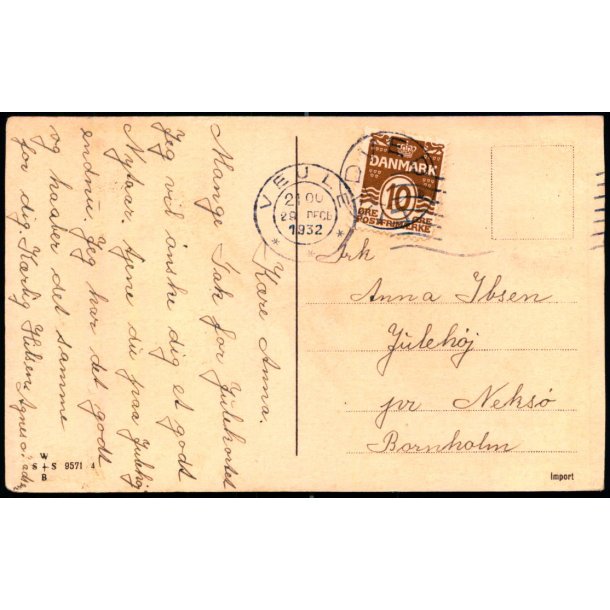 Kære Anna.
Mange Tak for Julekortet
Jeg vil ønske dig et godt
Nytaar. tjene du paa Julehøj
endnu. Jeg har det godt
og haaber det samme
for dig. Kærlig Hilsen Agnes
VEJLE
2100
29 DECB
1932
DANMARK
10
ØRE ØRE
POSTFRIMÆRKE
Frk
Anna Ibsen
Julehøj
pr Neksø
Bornholm
W
S+S 9571/4
B
Import